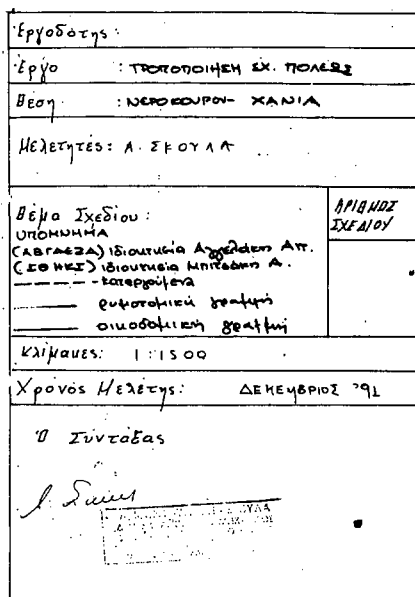 Εργοδότης:
Έργο : ΤΡΟΠΟΠΟΙΗΣΗ ΣΧ. ΠΟΛΕΩΣ
Θέση : ΝΕΡΟΚΟΥΡΟΥ- ΧΑΝΙΑ
Μελετητές: Α. ΣΚΟΥΛΑ
Θέμα Σχεδίου:
ΑΡΙΘΜΟΣ ΣΧΕΔΙΟΥ
ΥΠΟΜΝΗΜΑ
(ΑΒΓΔΕΖΑ) ιδιοκτησία Αγγελάκη Απ.
(ΙΘΗΚΙ) ιδιοκτησία Μπιτσάκη Α.
------ καταργούμενα
ρυμοτομική γραμμή
οικοδομική γραμμή
Κλίμακες: 1:1500
Χρόνος Μελέτης: ΔΕΚΕΜΒΡΙΟΣ '91
Ο Συντάξας